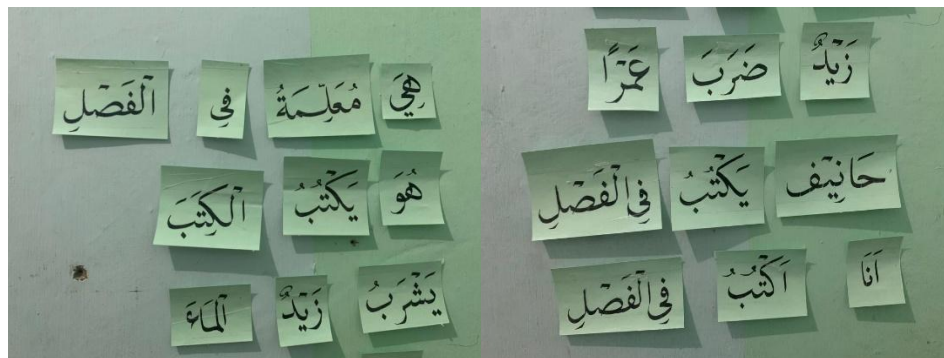 هِيَ مُعَلِّمَةُ فِى الْفَصْلِ
هُوَ يَكْتُبُ الْكِتَبَ
يَشْرَبُ زَيْدٌ الْمَاءَ
زَيْدٌ ضَرَبَ عَمْرًا
حَانِيْف يَكْتُبُ فِى الْفَصْلِ
اَنَا اَكْتُبُ فِى الْفَصْلِ